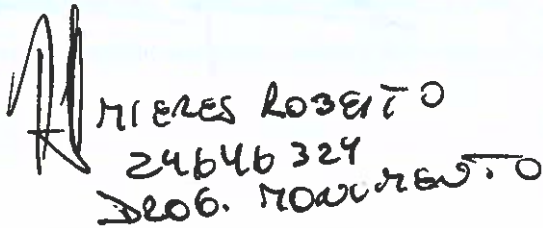 MIERES ROBERTO
24646324
DROG. MONUMENTO